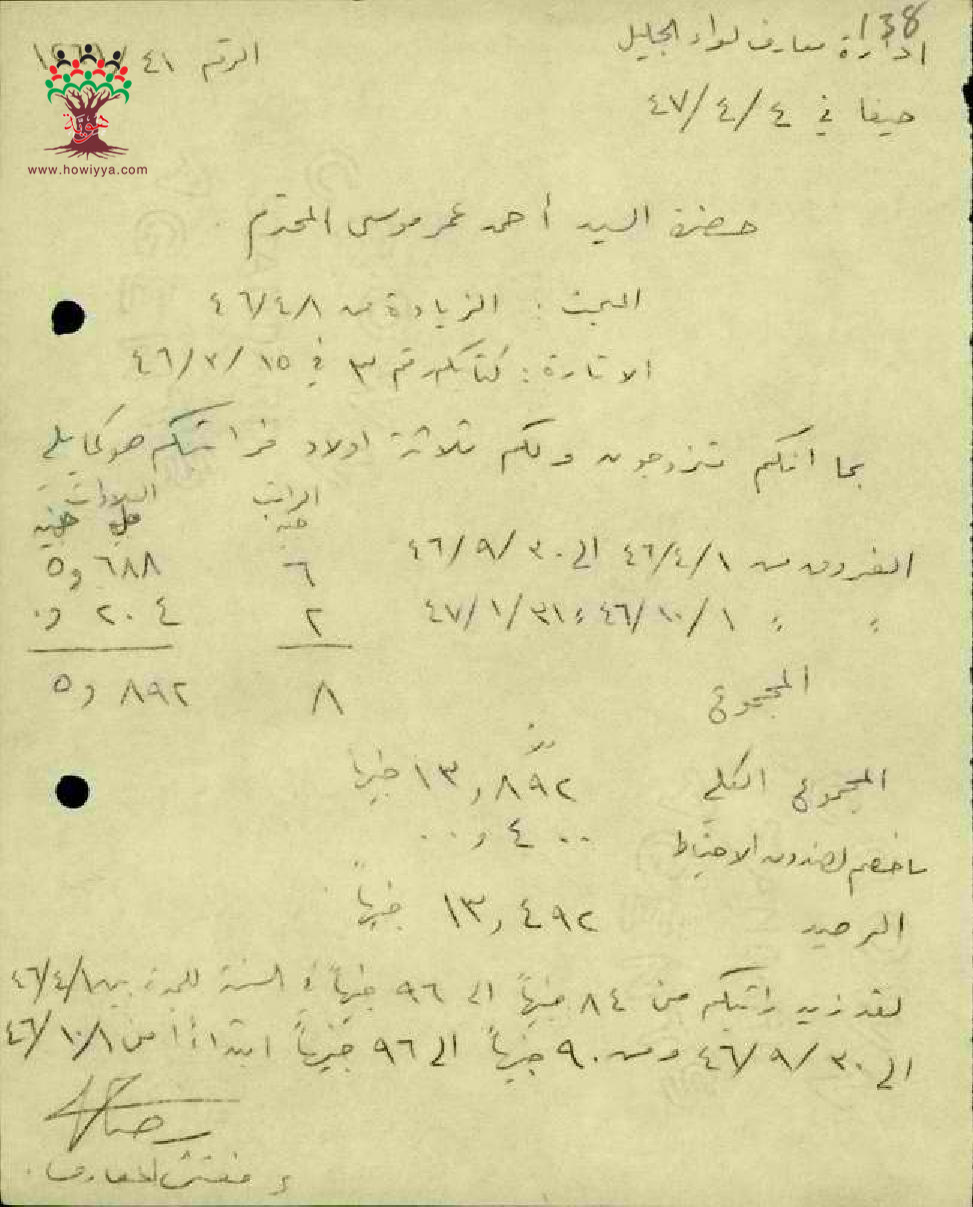 138
ادارة معارف لواء الجليل
الرقم ٤١
هوية
www.howiyya.com
حيفا في ٤/٤/٤٧
حضرة السيد أحمد عمر موسى المحترم
البحث : الزيادة من ٤٦/٤/١
الاشارة : كتابكم رقم ٣ في ٤٦/٣/١٥
بما انكم متزوجون ولكم ثلاثة اولاد فراتبكم هو كما يلي
الراتب العلاوات
جنيه مل جنيه
الفروق من ٤٦/٤/١ الى ٤٦/٩/٣٠ ٦ ٥,٦٨٨
" " ٤٦/١٠/١ " ٤٧/١/٣١ ٢ ٠,٢٠٤
المجموع ٨ ٥,٨٩٢
المجموع الكلي ١٣,٨٩٢ جنيهاً
ناقص لصندوق الاحتياط ٠٠,٤٠٠
الرصيد ١٣,٤٩٢ جنيهاً
لقد زيد راتبكم من ٨٤ جنيهاً الى ٩٦ جنيهاً في السنة للمدة بين ٤٦/٤/١
الى ٤٦/٩/٣٠ ومن ٩٠ جنيهاً الى ٩٦ جنيهاً ابتداءً من ٤٦/١٠/١
مفتش المعارف